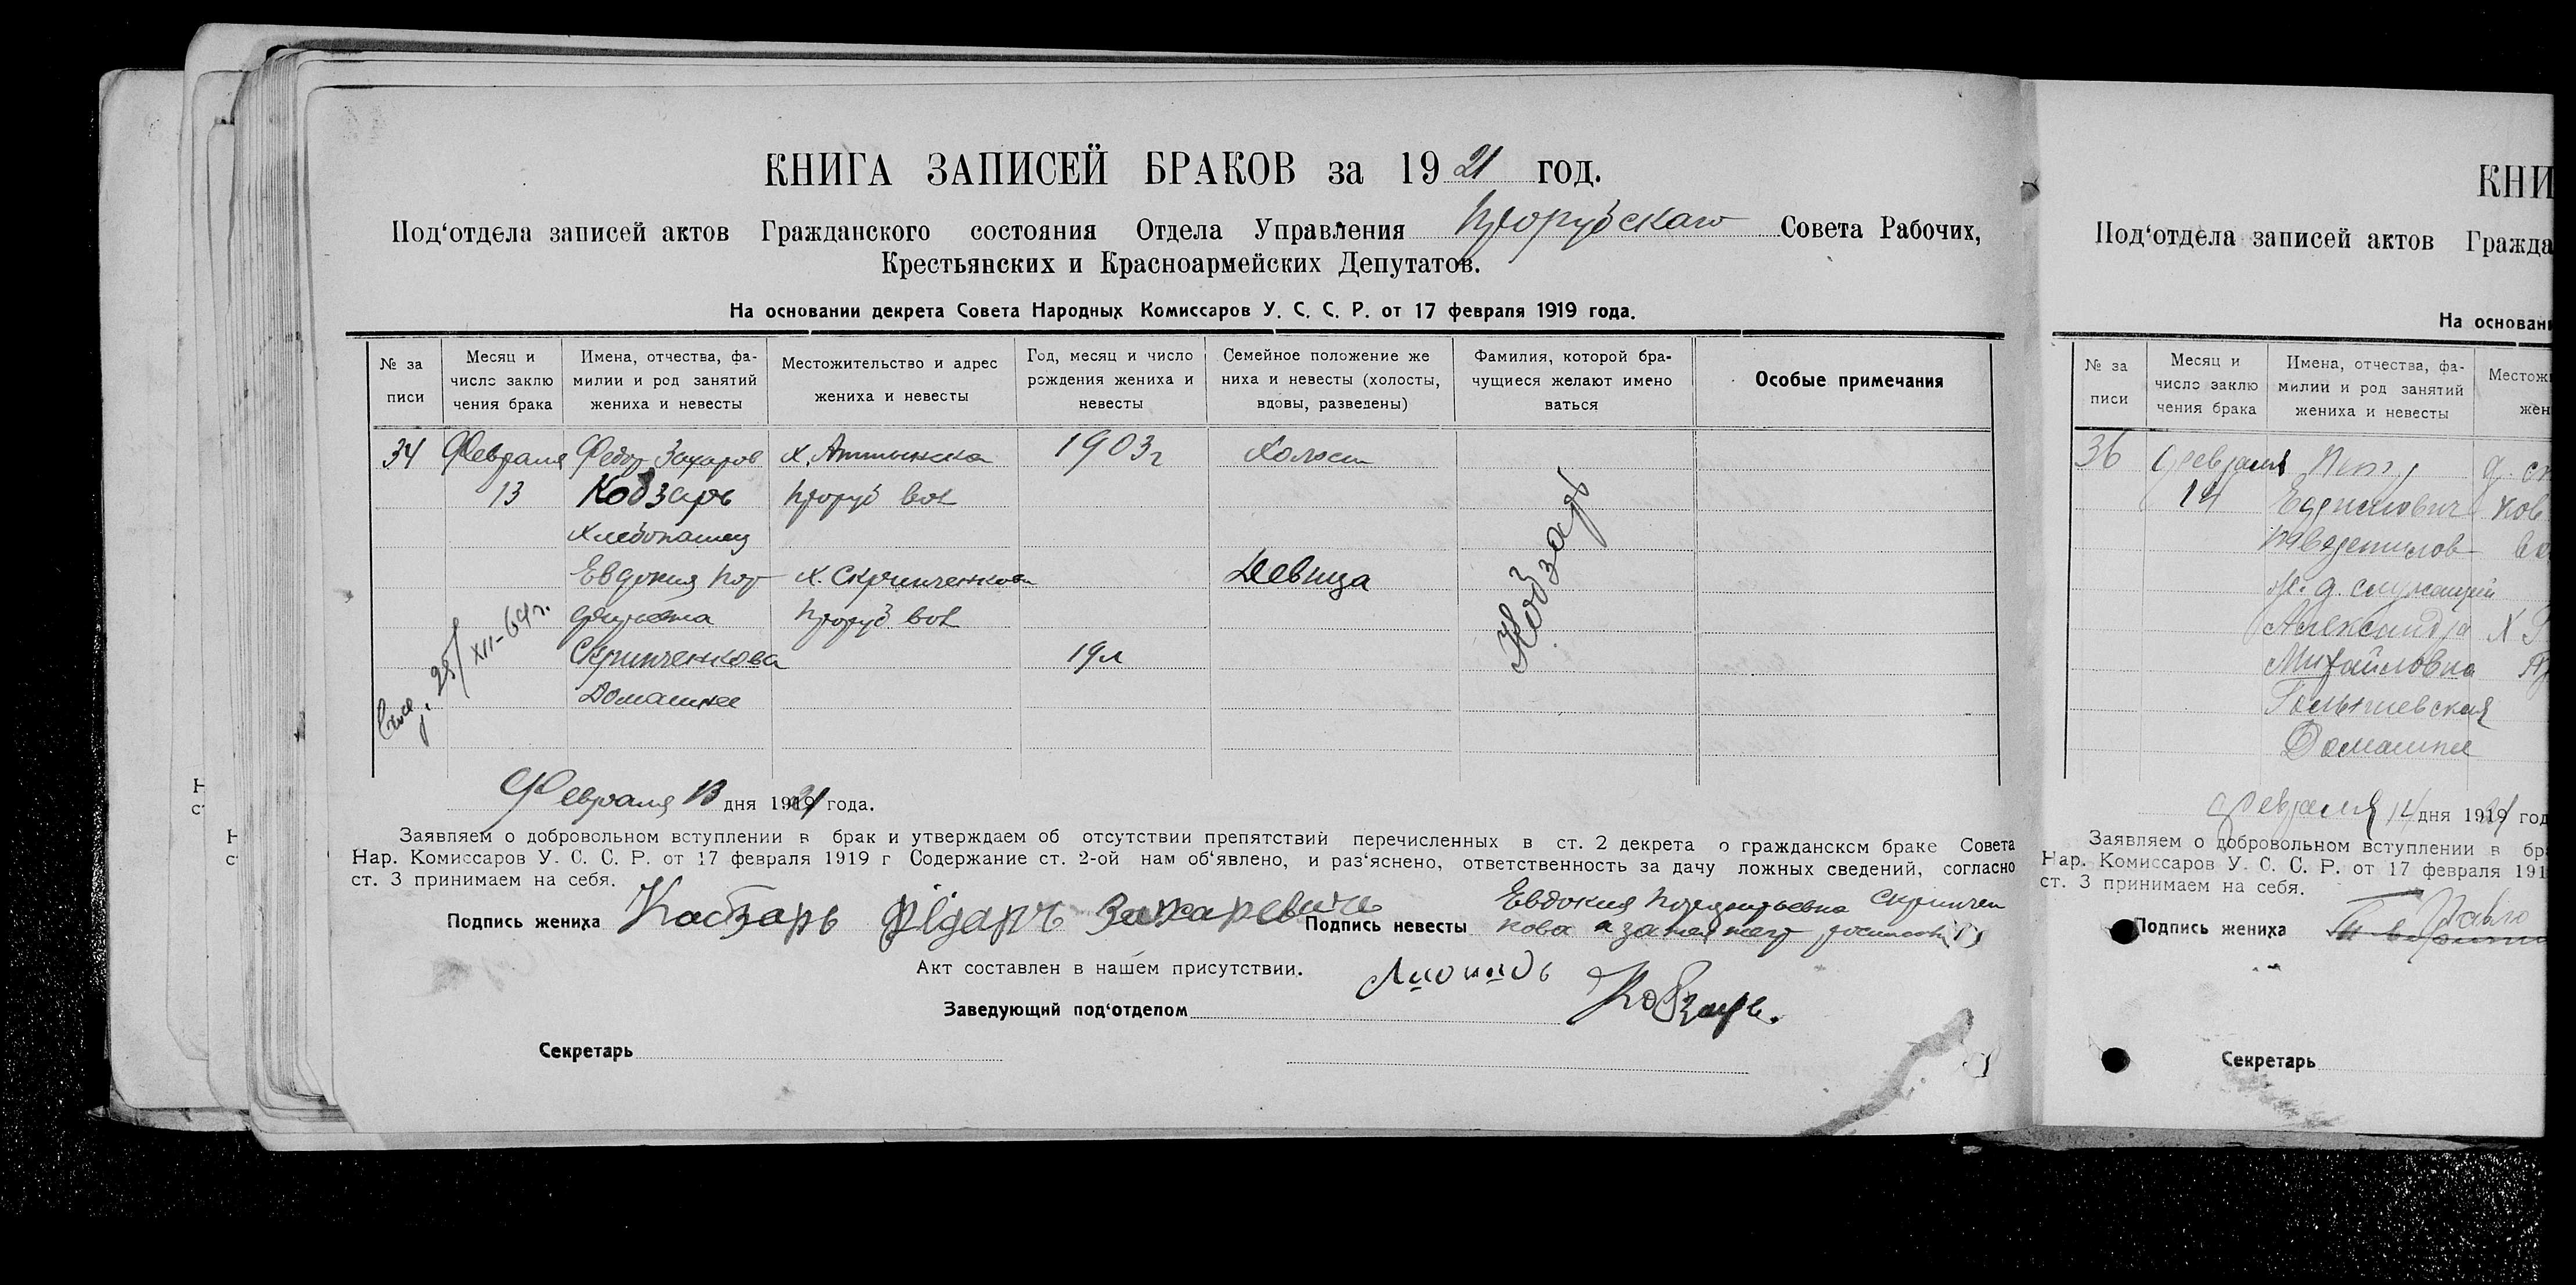 КНИГА ЗАПИСЕЙ БРАКОВ за 1921 год.
Под‘отдела записей актов Гражданского состояния Отдела Управления Совета Рабочих,
Крестьянских и Красноармейских Депутатов.
На основании декрета Совета Народных Комиссаров У. С. С. Р. от 17 февраля 1919 года.
№ за писи
Месяц и число заклю чения брака
Имена, отчества, фа- милии и род занятий жениха и невесты
Местожительство и адрес жениха и невесты
Год, месяц и число рождения жениха и невесты
Семейное положение же ниха и невесты (холосты, вдовы, разведены)
Фамилия, которой бра- чущиеся желают имено ваться
Особые примечания
34 Февраля Федор Захаров х. 1903 г Холост
13 Кобзарь
Хлебопашец
Евдокия х. Скрипченкова Девица
Скрипченкова 19 л
Домашнее
Кобзарь
25/XII-64 г.
Февраля 13 дня 1921 года.
Заявляем о добровольном вступлении в брак и утверждаем об отсутствии препятствий перечисленных в ст. 2 декрета о гражданском браке Совета
Нар. Комиссаров У. С. С. Р. от 17 февраля 1919 г Содержание ст. 2-ой нам об‘явлено, и раз‘яснено, ответственность за дачу ложных сведений, согласно
ст. 3 принимаем на себя.
Подпись жениха Кобзарь Захаревичь Подпись невесты Евдокия Скрипчен
кова а за неграмот
Акт составлен в нашем присутствии.
Заведующий под‘отделом Кобзарь.
Секретарь
КНИ
Под‘отдела записей актов Гражда
На основан
№ за писи
Месяц и число заклю чения брака
Имена, отчества, фа- милии и род занятий жениха и невесты
Местож жен
36 Февраля Петр
14
ж. д. служащий
Александра
Михайловна
Домашнее
Февраля 14 дня 1921 год
Заявляем о добровольном вступлении в бр
Нар. Комиссаров У. С. С. Р. от 17 февраля 191
ст. 3 принимаем на себя.
Подпись жениха
Секретарь